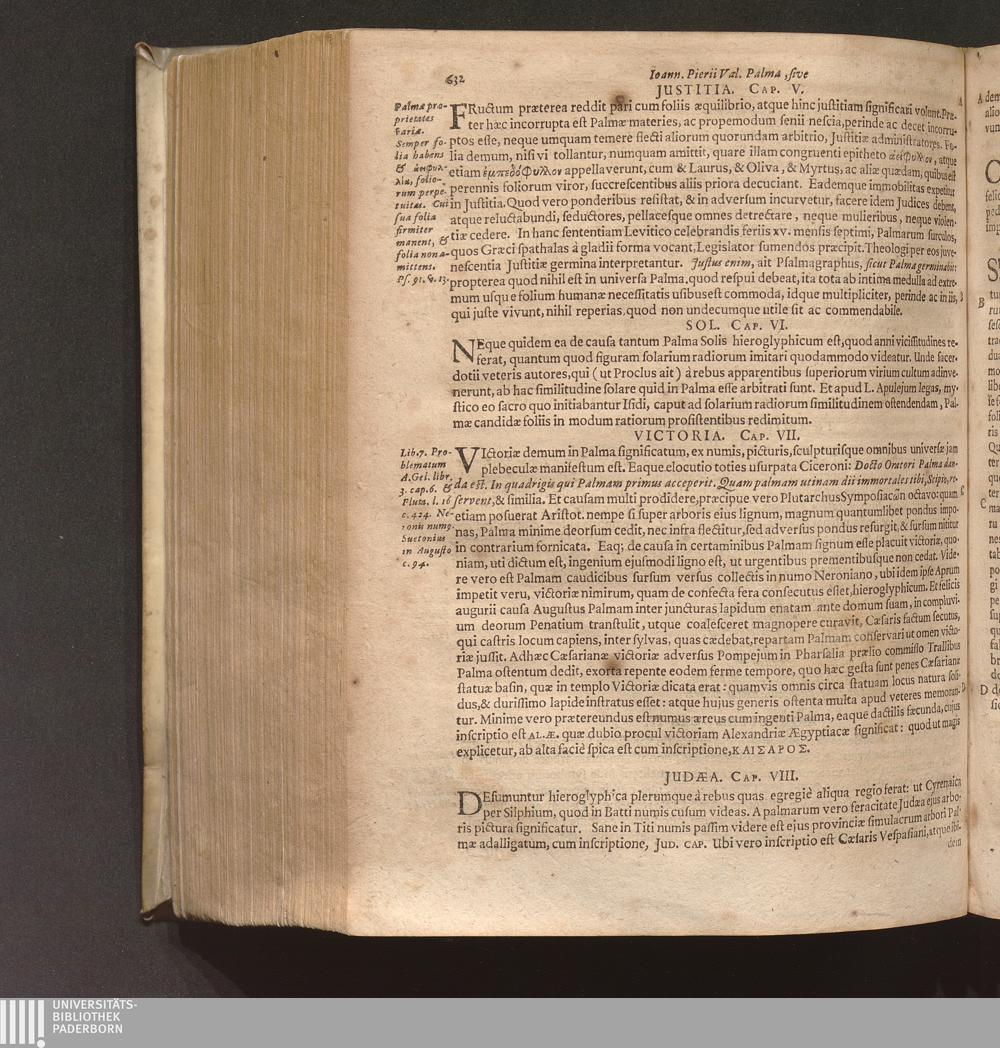 632
Ioann. Pierii Val. Palma, sive
JUSTITIA. CAP. V.
Palmæ pro-
prietates
variæ.
Semper fo-
lia habens
& ἀειφυλ-
λία, folio-
rum perpe-
tuitas. Cui
sua folia
firmiter
manent, &
folia non a-
mittens.
Ps. 91. v. 13.
FRuctum præterea reddit pari cum foliis æquilibrio, atque hinc justitiam significari volunt. Præ-
ter hæc incorrupta est Palmæ materies, ac propemodum senii nescia, perinde ac decet incorru-
ptos esse, neque umquam temere flecti aliorum quorundam arbitrio, Justitiæ administratores. Fo-
lia demum, nisi vi tollantur, numquam amittit, quare illam congruenti epitheto ἀειφυλλον, atque
etiam ἐμπεδόφυλλον appellaverunt, cum & Laurus, & Oliva, & Myrtus, ac aliæ quædam, quibus est
perennis foliorum viror, succrescentibus aliis priora decuciant. Eademque immobilitas expetitur
in Justitia. Quod vero ponderibus resistat, & in adversum incurvetur, facere idem Judices debent,
atque reluctabundi, seductores, pellacesque omnes detrectare, neque mulieribus, neque violen-
tiæ cedere. In hanc sententiam Levitico celebrandis feriis XV. mensis septimi, Palmarum surculos,
quos Græci spathalas à gladii forma vocant, Legislator sumendos præcipit. Theologi per eos juve-
nescentia Justitiæ germina interpretantur. Justus enim, ait Psalmagraphus, sicut Palma germinabit:
propterea quod nihil est in universa Palma, quod respui debeat, ita tota ab intima medulla ad extre-
mum usque folium humanæ necessitatis usibus est commoda, idque multipliciter, perinde ac in iis,
qui juste vivunt, nihil reperias, quod non undecumque utile sit ac commendabile.
SOL. CAP. VI.
NEque quidem ea de causa tantum Palma Solis hieroglyphicum est, quod anni vicissitudines re-
ferat, quantum quod figuram solarium radiorum imitari quodammodo videatur. Unde sacer-
dotii veteris autores, qui (ut Proclus ait) à rebus apparentibus superiorum virium cultum adinve-
nerunt, ab hac similitudine solare quid in Palma esse arbitrati sunt. Et apud L. Apulejum legas, my-
stico eo sacro quo initiabantur Isidi, caput ad solarium radiorum similitudinem ostendendam, Pal-
mæ candidæ foliis in modum ratiorum prosistentibus redimitum.
VICTORIA. CAP. VII.
Lib. 7. Pro-
blematum
A. Gel. libr.
3. cap. 6. &
Pluta. l. 16
c. 424. Ne-
ronis numo.
Suetonius
in Augusto
c. 94.
VIctoriæ demum in Palma significatum, ex numis, picturis, sculpturisque omnibus universæ jam
plebeculæ manifestum est. Eaque elocutio toties usurpata Ciceroni: Docto Oratori Palma dan-
da est. In quadrigis qui Palmam primus acceperit. Quam palmam utinam dii immortales tibi, Scipio, re-
servent, & similia. Et causam multi prodidere, præcipue vero Plutarchus Symposiacῶn octavo: quam
etiam posuerat Aristot. nempe si super arboris ejus lignum, magnum quantumlibet pondus impo-
nas, Palma minime deorsum cedit, nec infra flectitur, sed adversus pondus resurgit, & sursum nititur
in contrarium fornicata. Eaq; de causa in certaminibus Palmam signum esse placuit victoriæ, quo-
niam, uti dictum est, ingenium ejusmodi ligno est, ut urgentibus prementibusque non cedat. Vide-
re vero est Palmam caudicibus sursum versus collectis in numo Neroniano, ubi idem ipse Aprum
impetit veru, victoriæ nimirum, quam de confecta fera consecutus esset, hieroglyphicum. Et felicis
augurii causa Augustus Palmam inter juncturas lapidum enatam ante domum suam, in compluvi-
um deorum Penatium transtulit, utque coalesceret magnopere curavit, Cæsaris factum secutus,
qui castris locum capiens, inter sylvas, quas cædebat, repartam Palmam conservari ut omen victo-
riæ jussit. Adhæc Cæsarianæ victoriæ adversus Pompejum in Pharsalia prælio commisso Trallibus
Palma ostentum dedit, exorta repente eodem ferme tempore, quo hæc gesta sunt penes Cæsarianæ
statuæ basin, quæ in templo Victoriæ dicata erat: quamvis omnis circa statuam locus natura soli-
dus, & durissimo lapide instratus esset: atque hujus generis ostenta multa apud veteres memoran-
tur. Minime vero prætereundus est numus æreus cum ingenti Palma, eaque dactilis fæcunda, cujus
inscriptio est AL. Æ. quæ dubio procul victoriam Alexandriæ Ægyptiacæ significat: quod ut magis
explicetur, ab alta facie spica est cum inscriptione, ΚΑΙΣΑΡΟΣ.
JUDÆA. CAP. VIII.
DEsumuntur hieroglyphica plerumque à rebus quas egregie aliqua regio ferat: ut Cyrenaica
per Silphium, quod in Batti numis cusum videas. A palmarum vero feracitate Judæa ejus arbo-
ris pictura significatur. Sane in Titi numis passim videre est ejus provinciæ simulacrum arbori Pal-
mæ adalligatum, cum inscriptione, JUD. CAP. Ubi vero inscriptio est Cæsaris Vespasiani, atque ibi-
dem
UNIVERSITÄTS-
BIBLIOTHEK
PADERBORN